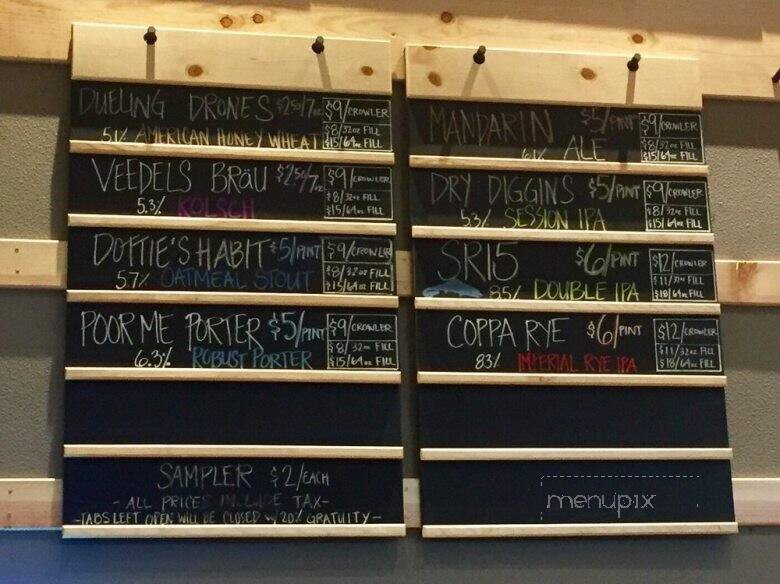 DUELING DRONES $2.50/7oz $9/CROWLER
5.1% AMERICAN HONEY WHEAT $8/32oz FILL
$15/64oz FILL
VEEDELS BRäU $2.50/7oz $9/CROWLER
5.3% KOLSCH $8/32oz FILL
$15/64oz FILL
DOTTIE'S HABIT $5/PINT $9/CROWLER
5.7% OATMEAL STOUT $8/32oz FILL
$15/64oz FILL
POOR ME PORTER $5/PINT $9/CROWLER
6.3% ROBUST PORTER $8/32oz FILL
$15/64oz FILL
SAMPLER $2/EACH
- ALL PRICES INCLUDE TAX-
-TABS LEFT OPEN WILL BE CLOSED w/ 20% GRATUITY-
MANDARIN $5/PINT $9/CROWLER
ALE $8/32oz FILL
$15/64oz FILL
DRY DIGGINS $5/PINT $9/CROWLER
5.3% SESSION IPA $8/32oz FILL
$15/64oz FILL
SR15 $6/PINT $12/CROWLER
8.5% DOUBLE IPA $11/32oz FILL
$18/64oz FILL
COPPA RYE $6/PINT $12/CROWLER
8.3% IMPERIAL RYE IPA $11/32oz FILL
$18/64oz FILL
menupix